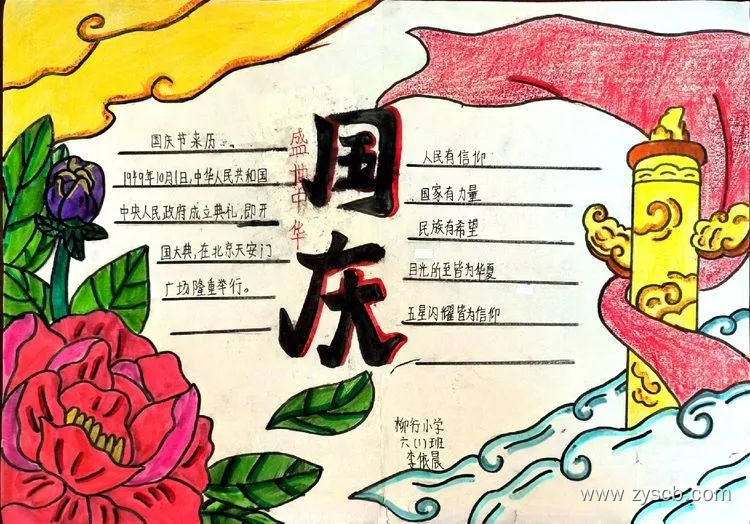 国庆
盛世中华
国庆节来历
1949年10月1日,中华人民共和国
中央人民政府成立典礼,即开
国大典,在北京天安门
广场隆重举行。
人民有信仰
国家有力量
民族有希望
目光所至皆为华夏
五星闪耀皆为信仰
柳行小学
六(1)班
李依晨
www.zyscb.com